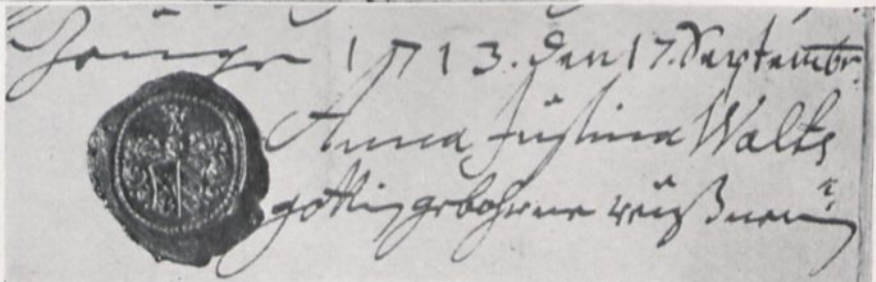 1713. den 17. Septembr.
Anna Justina Walts
gottin gebohrne reüßnerin